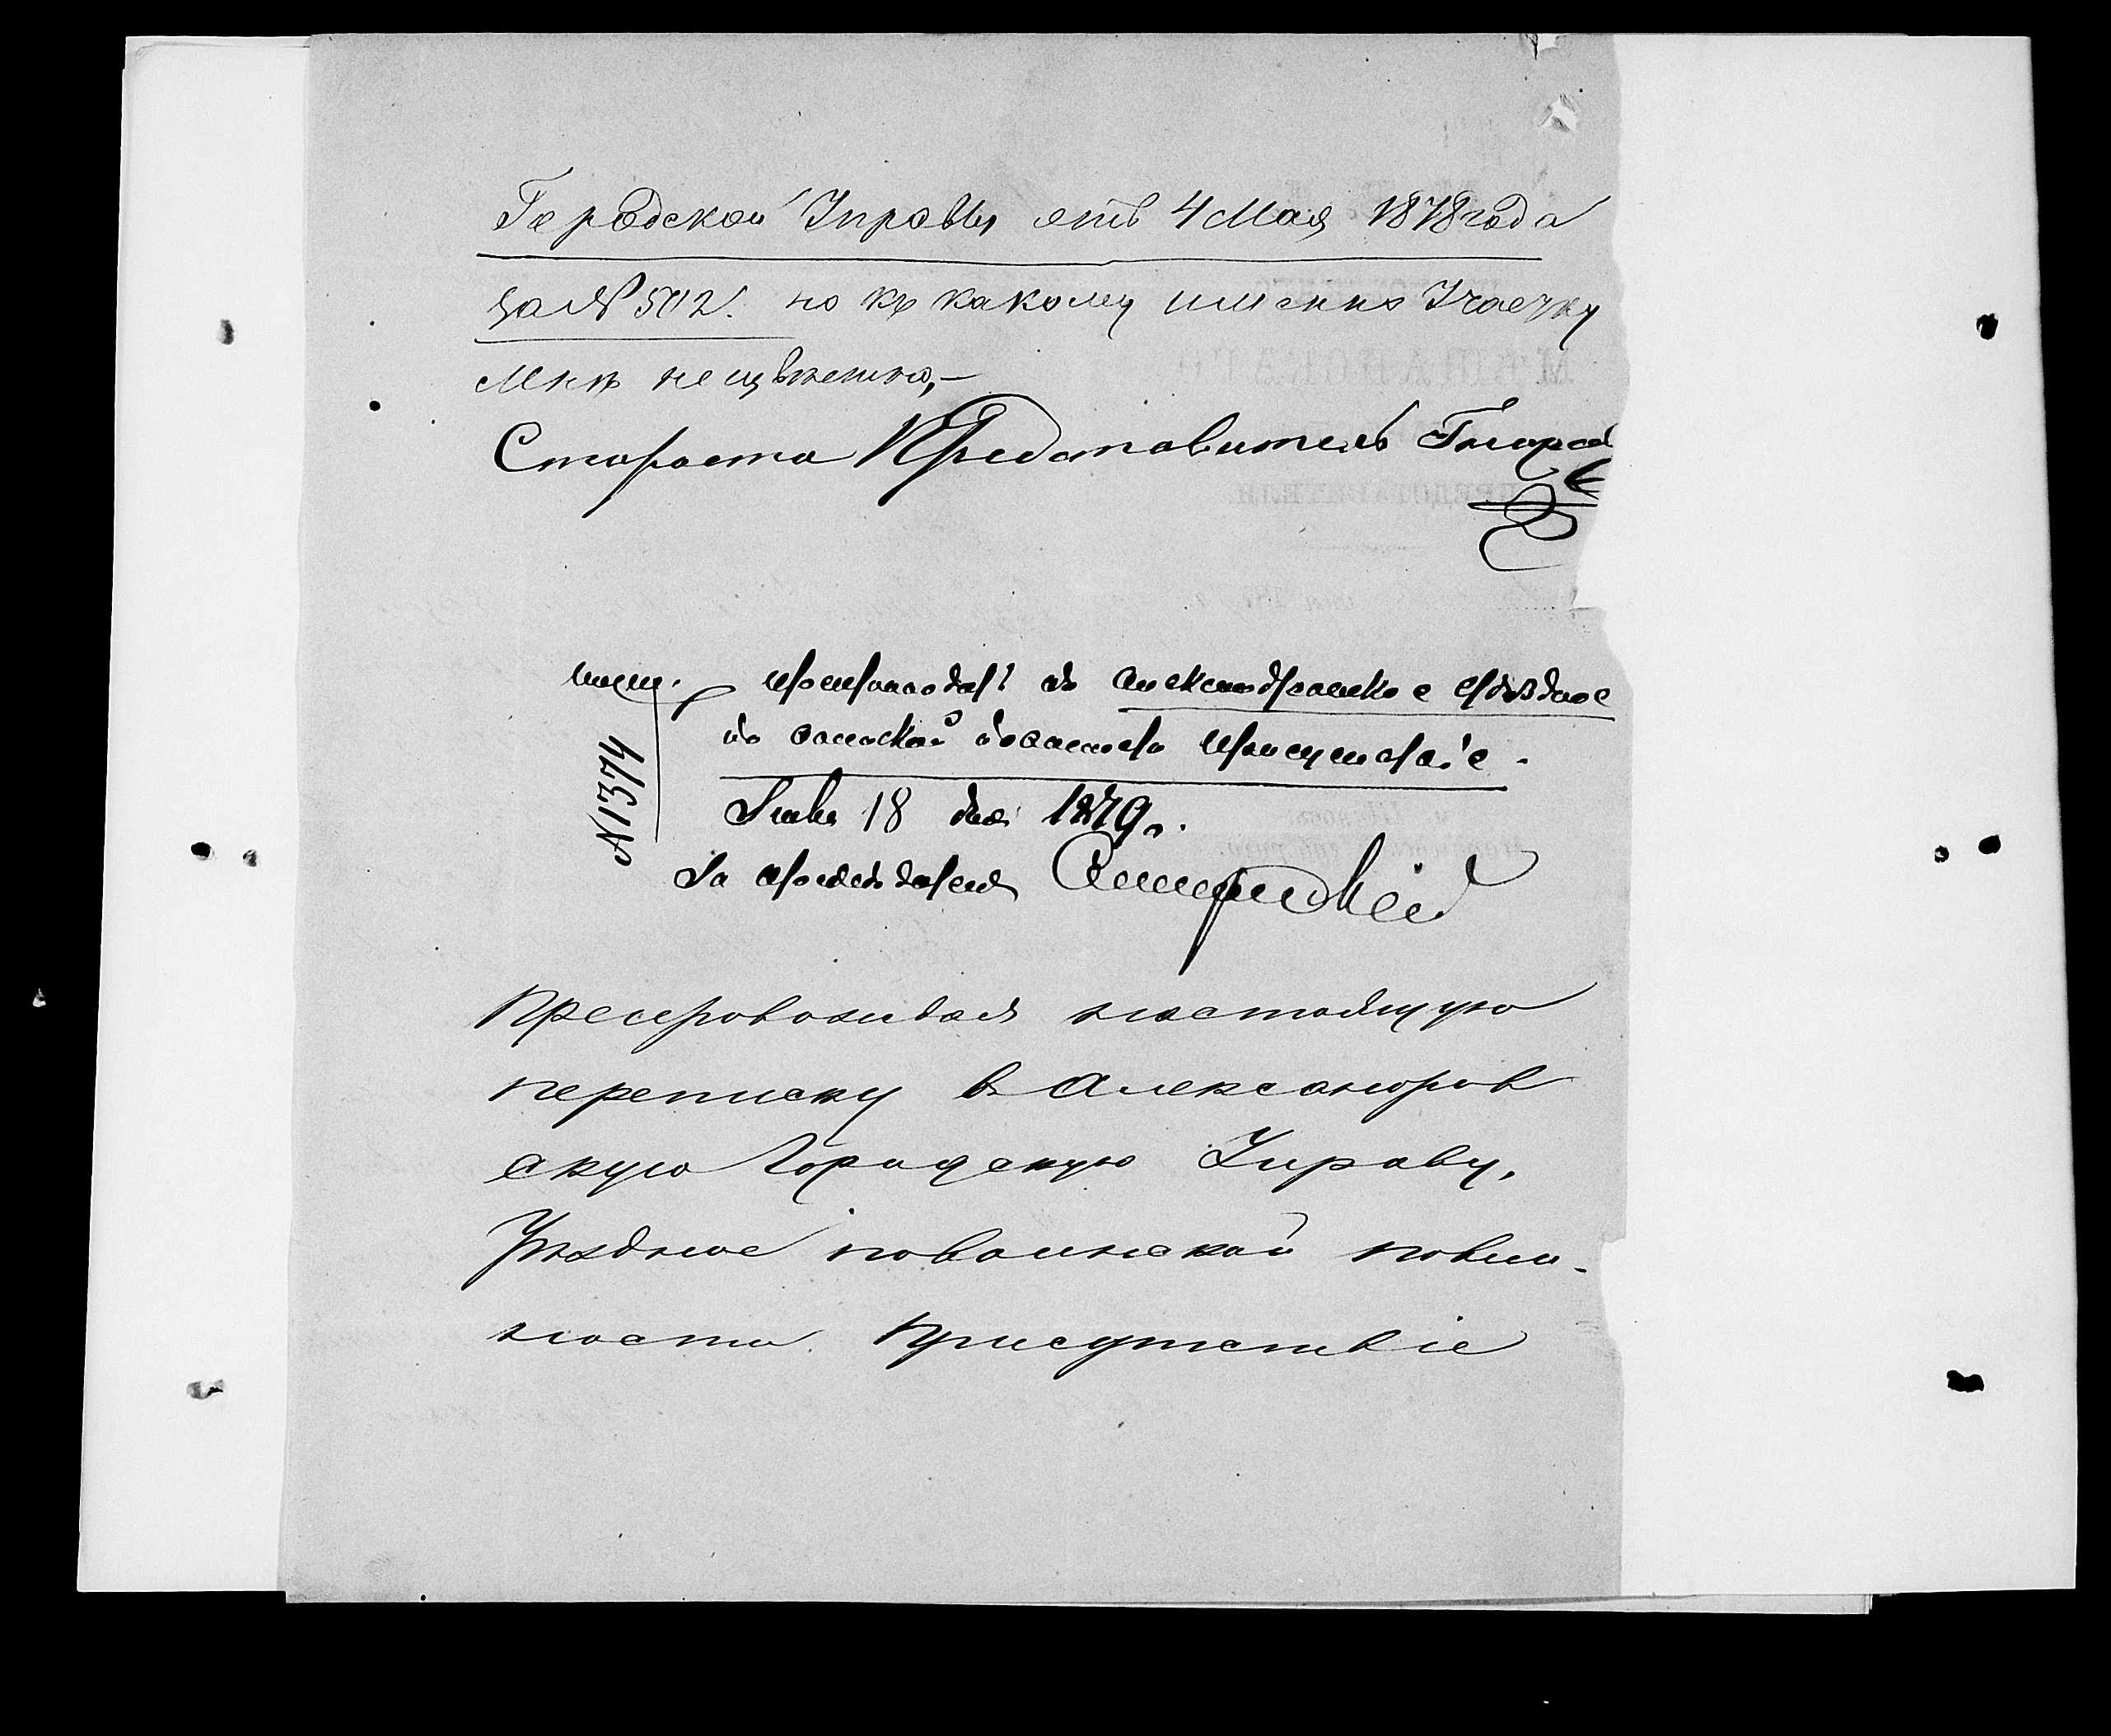 Городской Управы отъ 4 Мая 1878 года
за № 502. но къ какому именно Участку
Мнѣ не извѣстно,—
Староста Представитель
препроводить въ Александровское уѣздное
по воинской повинности присутствіе.
18 дня 1879 г.
№ 1374
За предсѣдателя
Препровождая настоящую
переписку в Александров
скую Городскую Управу,
Уѣздное по воинской повин-
ности Присутствіе